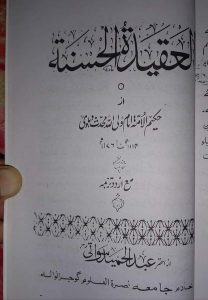 العقيدة الحسنة
از
حکیم الامت امام ولی اللہ محدث دہلوی
مع اردو ترجمہ
از احقر عبد الحمید سواتی
خادم جامعہ نصرۃ العلوم گوجرانوالہ